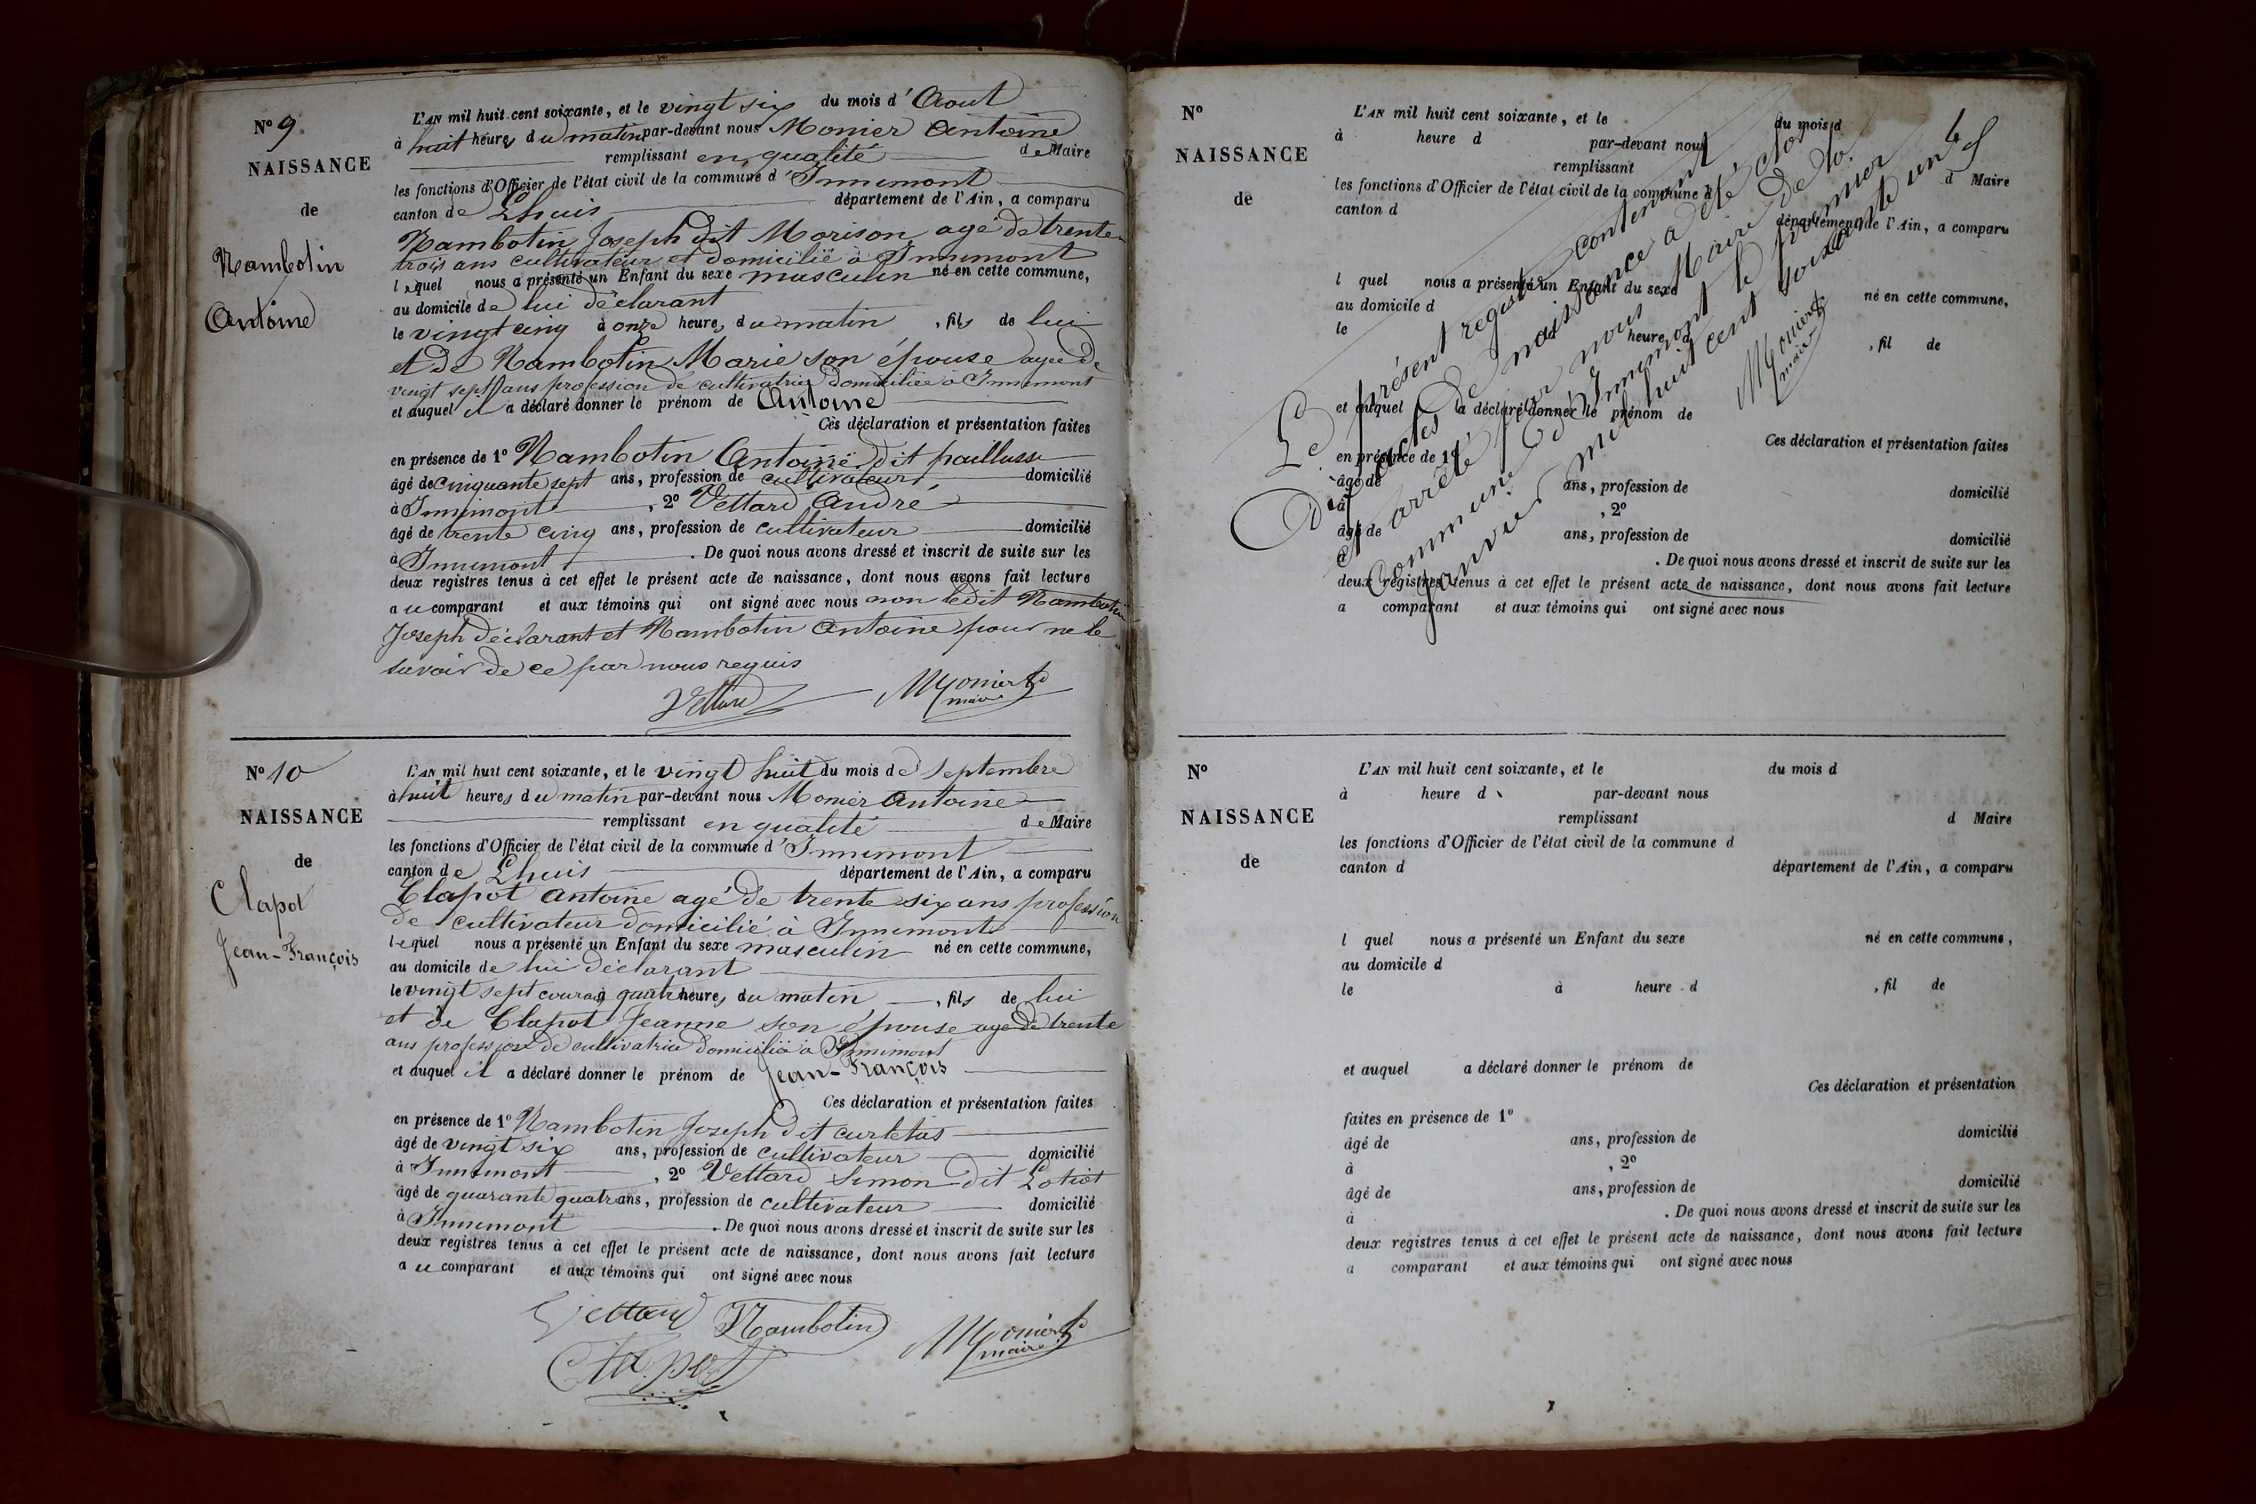 N° 9
NAISSANCE
de
Nambotin
Antoine
L'AN mil huit cent soixante, et le vingt six du mois d'Aout
à huit heures du matin par-devant nous Monier Antoine
remplissant en qualité de Maire
les fonctions d'Officier de l'état civil de la commune d'Innimont
canton de Lhuis département de l'Ain, a comparu
Nambotin Joseph dit Morison agé de trente
trois ans cultivateur et domicilié à Innimont
lequel nous a présenté un Enfant du sexe masculin né en cette commune,
au domicile de lui déclarant
le vingt cinq à onze heures du matin, fils de lui
et de Nambotin Marie son épouse agée de
vingt sept ans profession de cultivatrice domiciliée à Innimont
et auquel il a déclaré donner le prénom de Antoine
Ces déclaration et présentation faites
en présence de 1° Nambotin Antoine dit paillasse
âgé de cinquante sept ans, profession de cultivateur domicilié
à Innimont, 2° Vettard André
âgé de trente cinq ans, profession de cultivateur domicilié
à Innimont. De quoi nous avons dressé et inscrit de suite sur les
deux registres tenus à cet effet le présent acte de naissance, dont nous avons fait lecture
au comparant et aux témoins qui ont signé avec nous non ledit Nambotin
Joseph déclarant et Nambotin Antoine pour ne le
savoir de ce par nous requis
Vettard Monier
maire
N° 10
NAISSANCE
de
Clapot
Jean-François
L'AN mil huit cent soixante, et le vingt huit du mois de Septembre
à huit heures du matin par-devant nous Monier Antoine
remplissant en qualité de Maire
les fonctions d'Officier de l'état civil de la commune d'Innimont
canton de Lhuis département de l'Ain, a comparu
Clapot Antoine agé de trente six ans profession
de cultivateur domicilié à Innimont
lequel nous a présenté un Enfant du sexe masculin né en cette commune,
au domicile de lui déclarant
le vingt sept à quatre heures du matin, fils de lui
et de Clapot Jeanne son épouse agé de trente
ans profession de cultivatrice domiciliée à Innimont
et auquel il a déclaré donner le prénom de Jean-François
Ces déclaration et présentation faites
en présence de 1° Nambotin Joseph dit curtelas
âgé de vingt six ans, profession de cultivateur domicilié
à Innimont, 2° Vettard Simon dit Lotiot
âgé de quarante quatre ans, profession de cultivateur domicilié
à Innimont. De quoi nous avons dressé et inscrit de suite sur les
deux registres tenus à cet effet le présent acte de naissance, dont nous avons fait lecture
au comparant et aux témoins qui ont signé avec nous
Vettard Nambotin Monier
Clapot maire
N°
NAISSANCE
de
L'AN mil huit cent soixante, et le du mois d
à heure d par-devant nous
remplissant d Maire
les fonctions d'Officier de l'état civil de la commune d
canton d département de l'Ain, a comparu
l quel nous a présenté un Enfant du sexe né en cette commune,
au domicile d
le heure d, fil de
et auquel a déclaré donner le prénom de
Ces déclaration et présentation faites
en présence de 1°
âgé de ans, profession de domicilié
à, 2°
âgé de ans, profession de domicilié
à. De quoi nous avons dressé et inscrit de suite sur les
deux registres tenus à cet effet le présent acte de naissance, dont nous avons fait lecture
a comparant et aux témoins qui ont signé avec nous
Le présent registre contenant
Dix actes de naissance a été clos
et arrêté par nous Maire de la
Commune d'Innimont le premier
Janvier mil huit cent soixante un
Monier
maire
N°
NAISSANCE
de
L'AN mil huit cent soixante, et le du mois d
à heure d par-devant nous
remplissant d Maire
les fonctions d'Officier de l'état civil de la commune d
canton d département de l'Ain, a comparu
l quel nous a présenté un Enfant du sexe né en cette commune,
au domicile d
le à heure d, fil de
et auquel a déclaré donner le prénom de
Ces déclaration et présentation
faites en présence de 1°
âgé de ans, profession de domicilié
à, 2°
âgé de ans, profession de domicilié
à. De quoi nous avons dressé et inscrit de suite sur les
deux registres tenus à cet effet le présent acte de naissance, dont nous avons fait lecture
a comparant et aux témoins qui ont signé avec nous